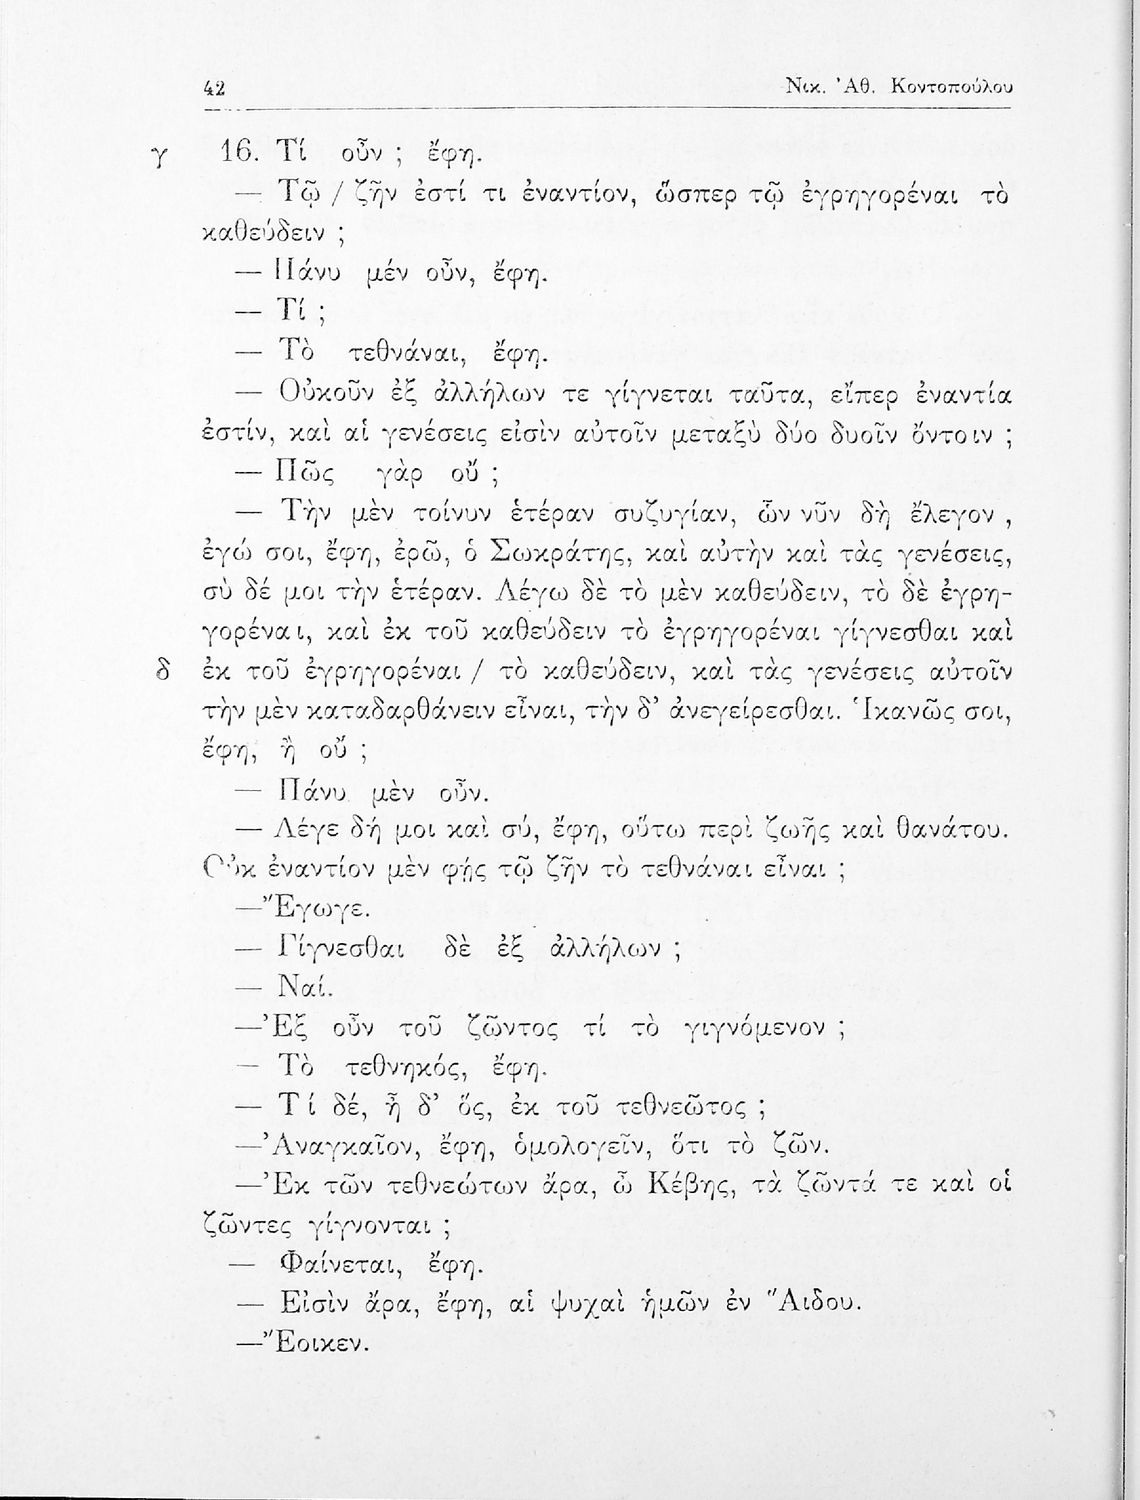 42 Νικ. Ἀθ. Κοντοπούλου
γ 16. Τί οὖν ; ἔφη.
— Τῷ / ζῆν ἐστί τι ἐναντίον, ὥσπερ τῷ ἐγρηγορέναι τὸ
καθεύδειν ;
— Πάνυ μέν οὖν, ἔφη.
— Τί ;
— Τὸ τεθνάναι, ἔφη.
— Οὐκοῦν ἐξ ἀλλήλων τε γίγνεται ταῦτα, εἴπερ ἐναντία
ἐστίν, καὶ αἱ γενέσεις εἰσὶν αὐτοῖν μεταξὺ δύο δυοῖν ὄντοιν ;
— Πῶς γὰρ οὔ ;
— Τὴν μὲν τοίνυν ἑτέραν συζυγίαν, ὧν νῦν δὴ ἔλεγον ,
ἐγώ σοι, ἔφη, ἐρῶ, ὁ Σωκράτης, καὶ αὐτὴν καὶ τὰς γενέσεις,
σὺ δέ μοι τὴν ἑτέραν. Λέγω δὲ τὸ μὲν καθεύδειν, τὸ δὲ ἐγρη-
γορέναι, καὶ ἐκ τοῦ καθεύδειν τὸ ἐγρηγορέναι γίγνεσθαι καὶ
δ ἐκ τοῦ ἐγρηγορέναι / τὸ καθεύδειν, καὶ τὰς γενέσεις αὐτοῖν
τὴν μὲν καταδαρθάνειν εἶναι, τὴν δ’ ἀνεγείρεσθαι. Ἱκανῶς σοι,
ἔφη, ἢ οὔ ;
— Πάνυ μὲν οὖν.
— Λέγε δή μοι καὶ σύ, ἔφη, οὕτω περὶ ζωῆς καὶ θανάτου.
Οὐκ ἐναντίον μὲν φῄς τῷ ζῆν τὸ τεθνάναι εἶναι ;
—Ἔγωγε.
— Γίγνεσθαι δὲ ἐξ ἀλλήλων ;
— Ναί.
—Ἐξ οὖν τοῦ ζῶντος τί τὸ γιγνόμενον ;
— Τὸ τεθνηκός, ἔφη.
— Τί δέ, ἦ δ’ ὅς, ἐκ τοῦ τεθνεῶτος ;
—Ἀναγκαῖον, ἔφη, ὁμολογεῖν, ὅτι τὸ ζῶν.
—Ἐκ τῶν τεθνεώτων ἄρα, ὦ Κέβης, τὰ ζῶντά τε καὶ οἱ
ζῶντες γίγνονται ;
— Φαίνεται, ἔφη.
— Εἰσὶν ἄρα, ἔφη, αἱ ψυχαὶ ἡμῶν ἐν Ἅιδου.
—Ἔοικεν.